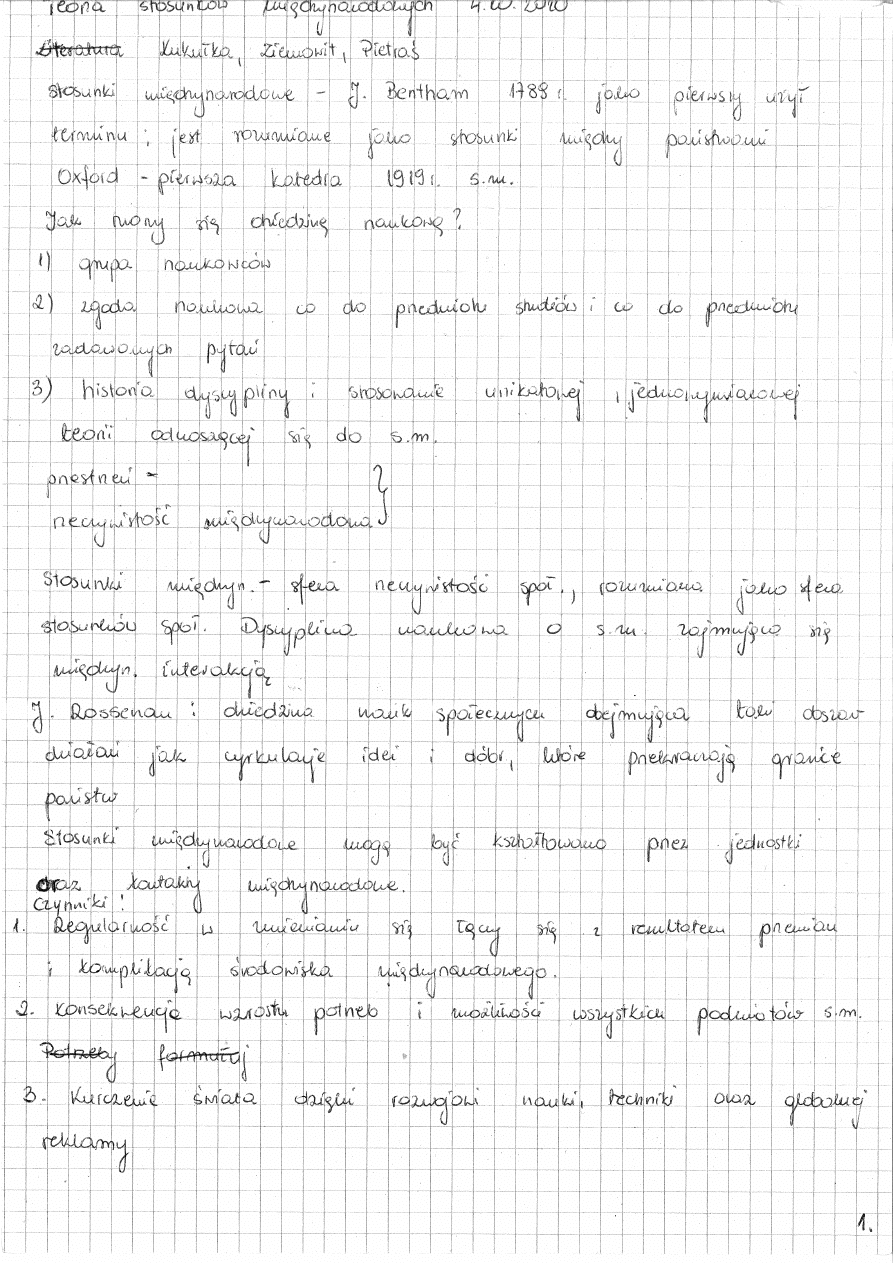 Teoria stosunków międzynarodowych
Literatura Kukułka, Ziemowit, Pietraś
Stosunki międzynarodowe - J. Bentham 1789 r. jako pierwszy użył
terminu; jest rozumiane jako stosunki między państwami
Oxford - pierwsza katedra 1919 r. s.m.
Jak tworzy się dziedzinę naukową?
1) grupa naukowców
2) zgoda naukowa co do przedmiotu studiów i co do przedmiotu
zadawanych pytań
3) historia dyscypliny i stosowanie unikatowej, jednowymiarowej
teorii odnoszącej się do s.m.
przestrzeń -
rzeczywistość międzynarodowa }
Stosunki międzyn. - sfera rzeczywistość społ., rozumiana jako sfera
stosunków społ. Dyscyplina naukowa o s.m. zajmująca się
międzyn. interakcją
J. Rossenau : dziedzina nauk społecznych obejmująca taki obszar
działań jak cyrkulacje idei i dóbr, które przekraczają granice
państw
Stosunki międzynarodowe mogą być kształtowano przez jednostki
oraz kontakty międzynarodowe.
Czynniki:
1. Regularność w zmienianiu się łączy się z rezultatem przemian
i komplikacją środowiska międzynarodowego.
2. Konsekwencje wzrostu potrzeb i możliwości wszystkich podmiotów s.m.
Potrzeby formułuj
3. Kurczenie świata dzięki rozwojowi nauki, techniki oraz globalnej
reklamy
1.